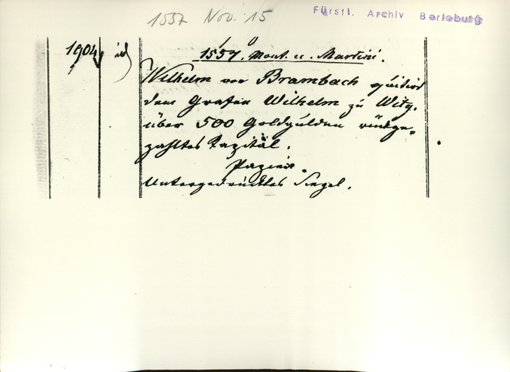 1557 Nov. 15
Fürstl. Archiv Berleburg
1904 id)
1557, Mont. n. Martini.
Wilhelm von Brambach quittirt
dem Grafen Wilhelm zu Witg.
über 500 Goldgulden rückge-
zahltes Kapital.
Papier.
Untergedrücktes Siegel.